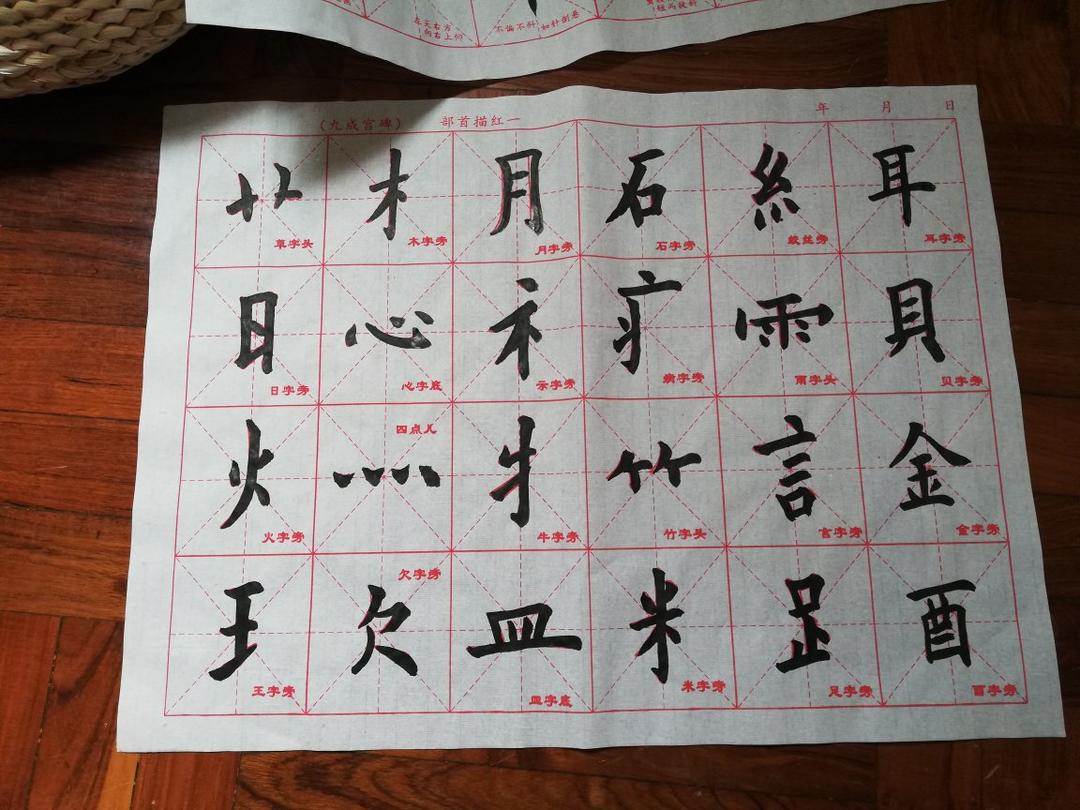 在天右方
向右上仰
不偏不斜
如针倒悬
(九成宫碑) 部首描红一 年 月 日
艹 木 月 石 糹 耳
草字头 木字旁 月字旁 石字旁 绞丝旁 耳字旁
日 心 礻 疒 雨 貝
日字旁 心字底 示字旁 病字旁 雨字头 贝字旁
四点儿
火 灬 牜 竹 言 金
火字旁 牛字旁 竹字头 言字旁 金字旁
欠字旁
王 欠 皿 米 𧾷 酉
王字旁 皿字底 米字旁 足字旁 酉字旁